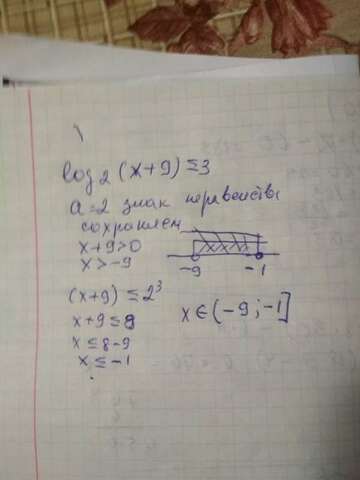 log₂(x+9) ≤ 3
a=2 знак неравенства
сохраняем
x+9>0
x>-9
-9 -1
(x+9) ≤ 2³
x+9 ≤ 8
x ≤ 8-9
x ≤ -1
x ∈ (-9; -1]